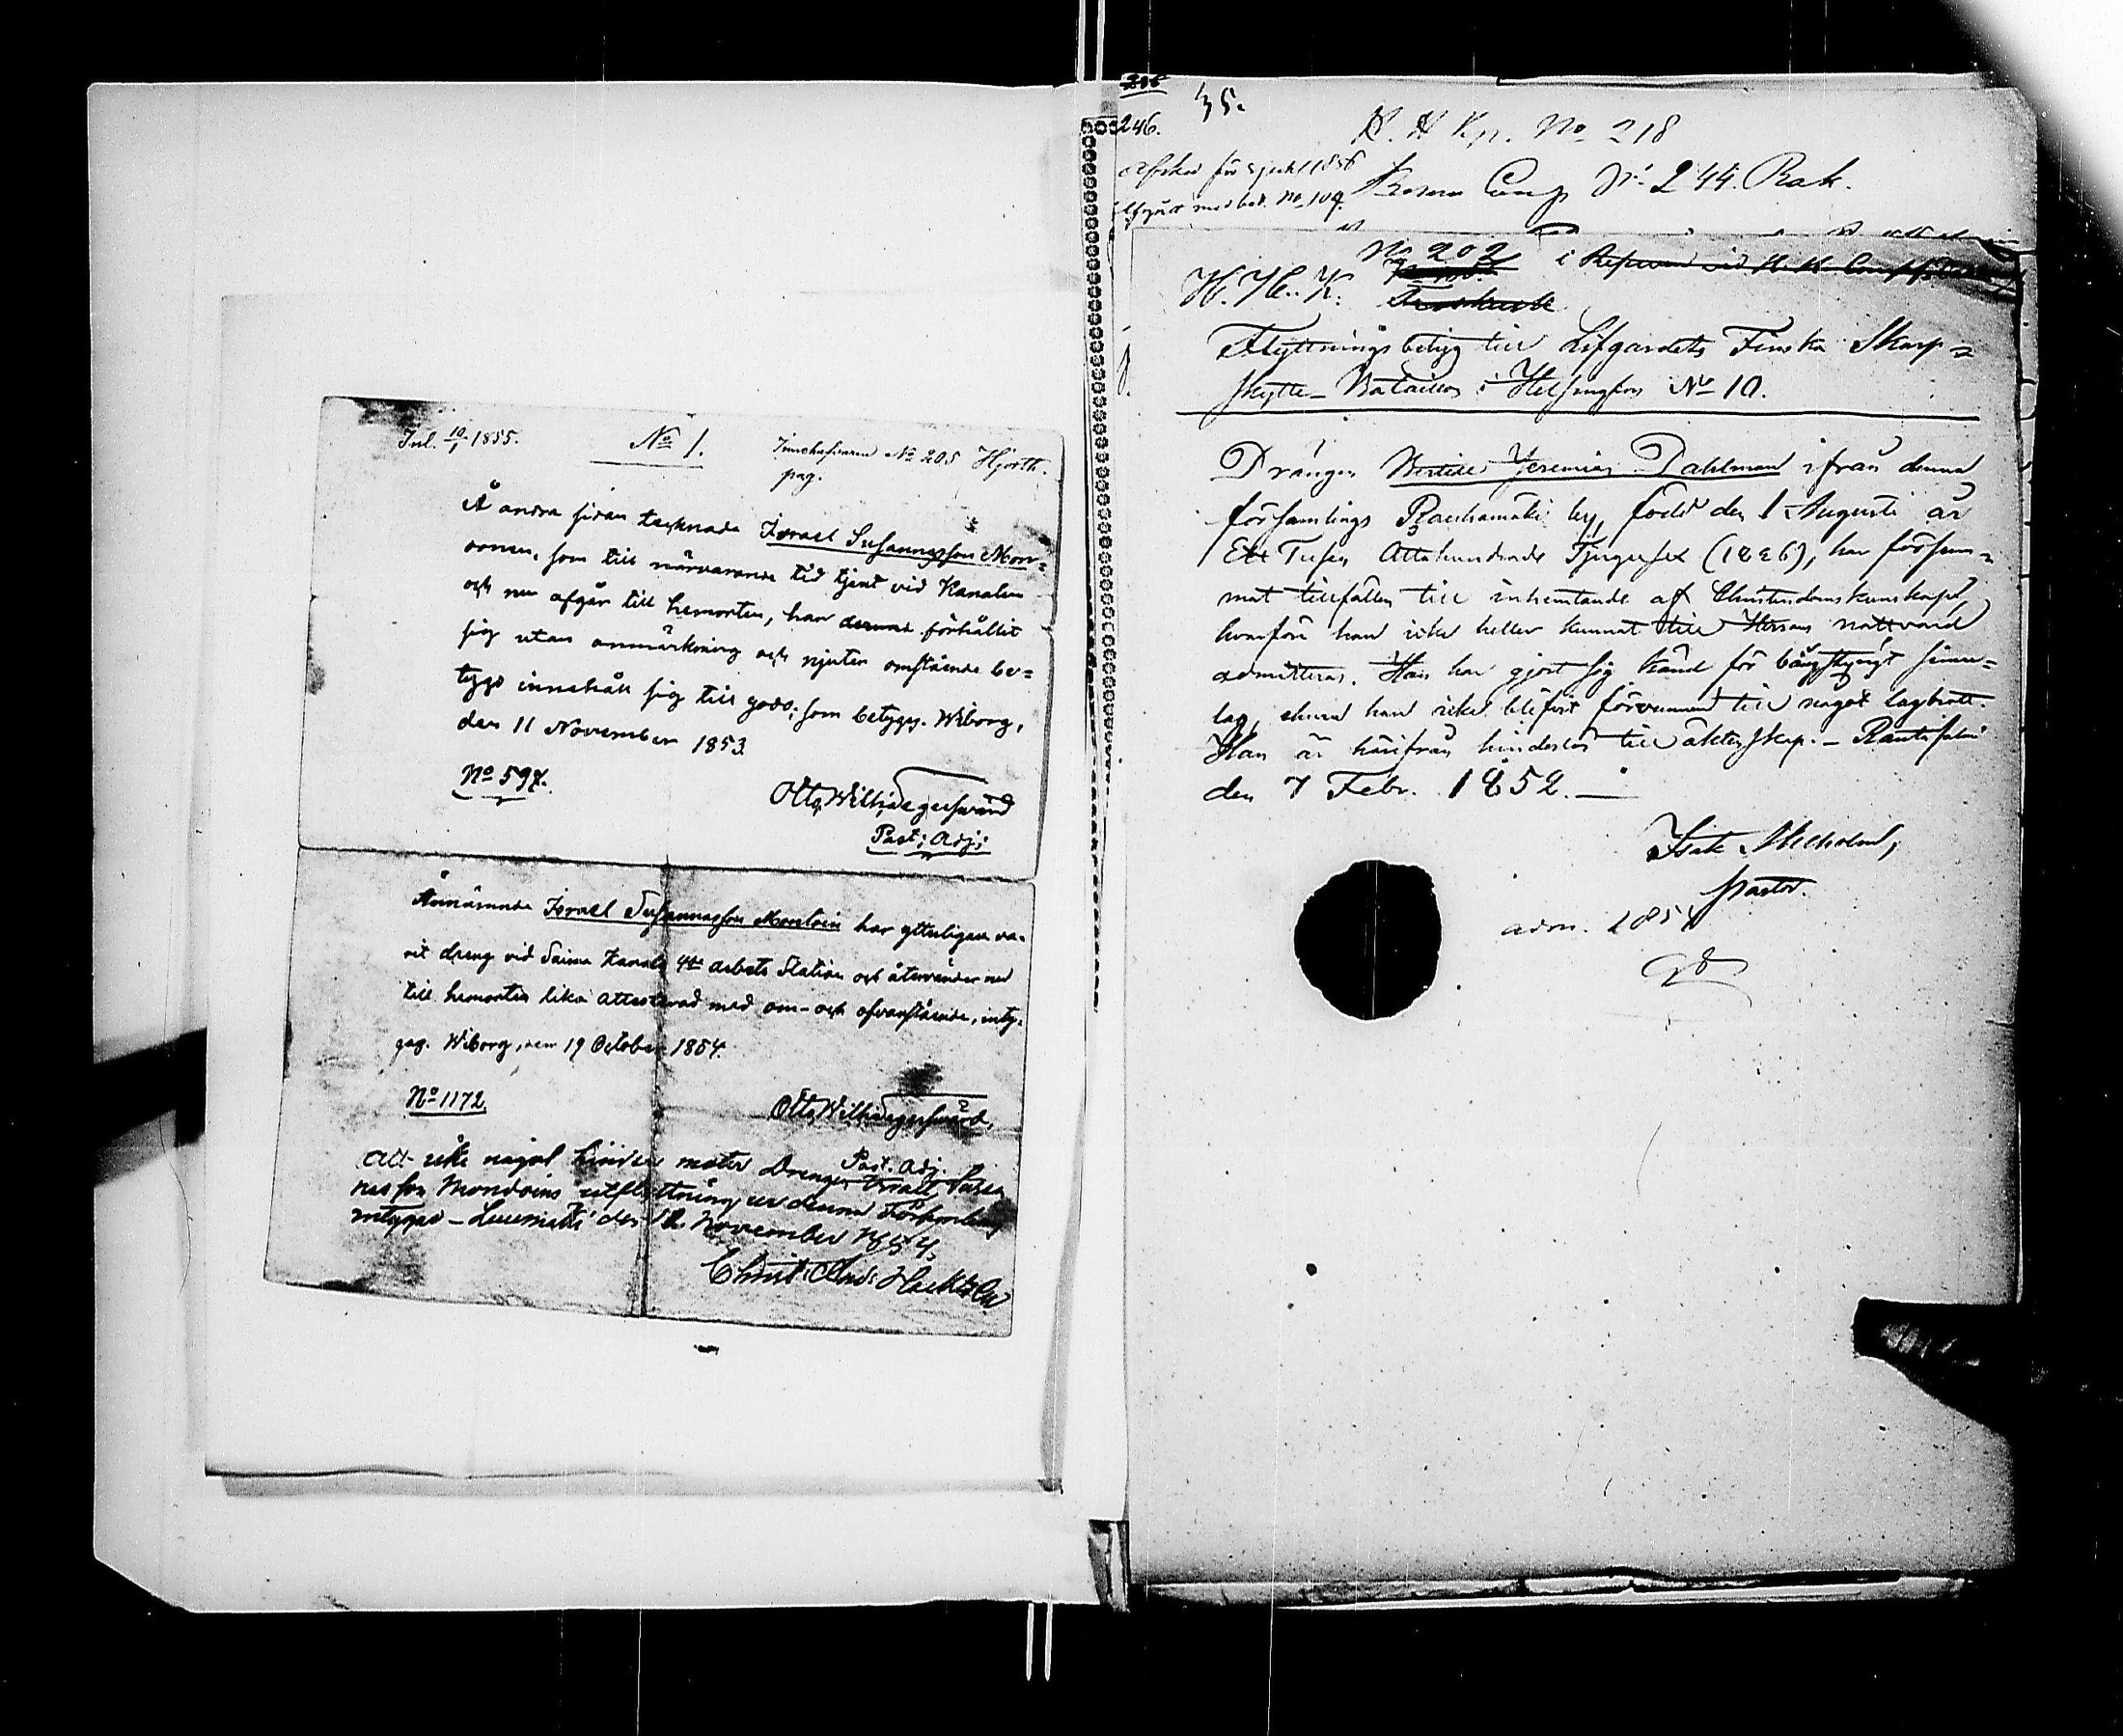 Inl. 10/1 1855.
No 1.
Innehafvaren No 205 Hjorth.
pag.
Å andra sidan tecknade Israel Susannasson Mon=
onen, som till närvarande tid tjent vid Kanalen
och nu afgår till hemorten, har förhållit
sig utan anmärkning och njuter omstående be=
tygs innehåll sig till godo; som betygas. Wiborg,
den 11 November 1853.
No 597.
Otto Wilh:
Past: Adj:
Ännämnde Israel Susannasson har ytterligare va-
rit dreng vid Saima Kanals 4de arbets Station och återvänder nu
till hemorten lika attesterad med om- och ofvanstående, inty-
gas. Wiborg, den 19 October 1854.
No 1172.
Otto Wilh:
Past. Adj.
Att icke något hinder möter Drengen Israel Susan
nasson Mondoins utflyttning ur denna Församling
intygas - Luumäki den 12 November 1854.
Christ:
246.
35.
K. H Kp. No 218
1856
med bet. No 104.
Comp No 244. Rak.
No 202 i
H. H. K.
Flyttningsbetyg till Lifgardets Finska Skarp=
skytte-Bataillon i Helsingfors No 10.
Drängen Jeremias Dahlman ifrån denna
församlings by, född den 1 Augusti år
Ett Tusen Åttahundrade Tjugusex (1826), har försum=
mat tillfällen till inhemtande af Christendomskunskap,
hvarföre han icke heller kunnat till Herrans nattvard
admitteras. Han har gjort sig känd för sinne=
lag, ehuru han icke blifvit förvunnen till något lagbrott.
Han är härifrån hinderlös till äktenskap. - Rautis
den 7 Febr. 1852.
Isak
Pastor.
adm. 1854